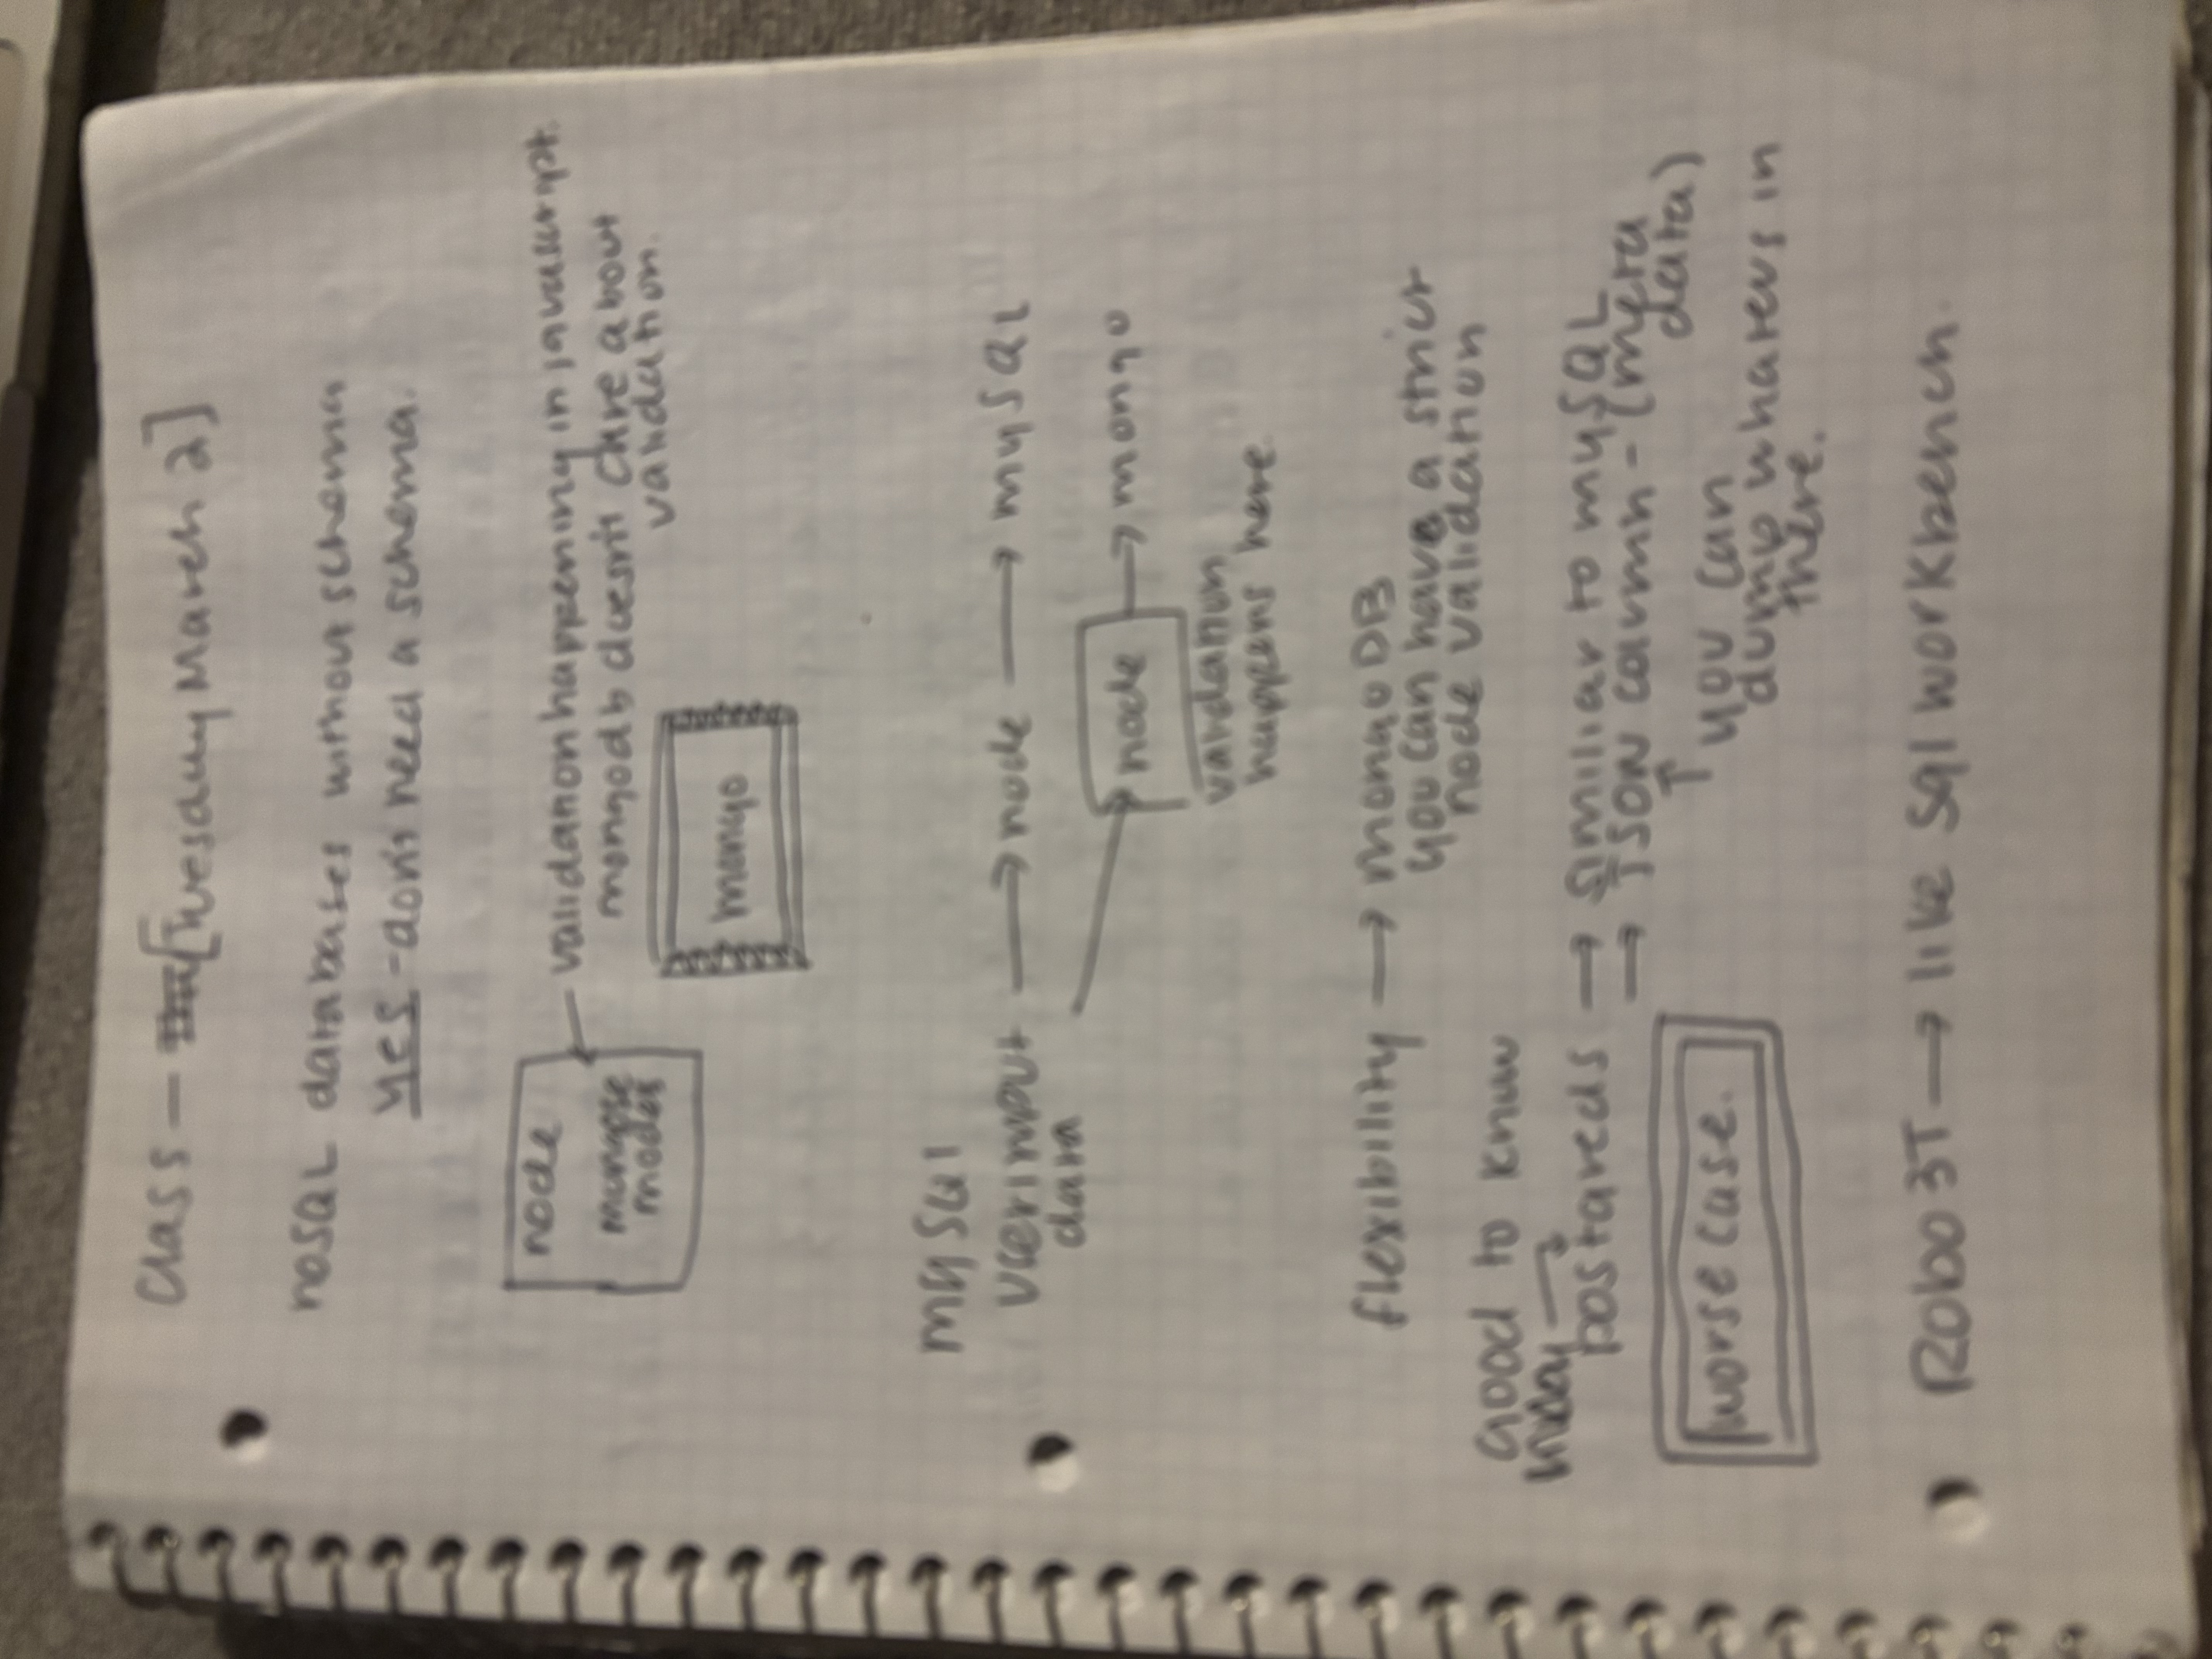 Class — [Tuesday March 2]
noSQL databases without schema
yes - don't need a schema.
node
validation happening in javascript.
mongodb doesn't care about
validation.
mongose
models
mongo
mySQl
user input → node → mySQL
data
node → mongo
validation
happens here.
flexibility → mongoDB
you can have a strict
node validation
Good to know
→ similiar to mySQL
→ JSON column - (meta
data)
↑ you can
dump whatevs in
there.
worse case.
Robo 3T → like sql workbench.